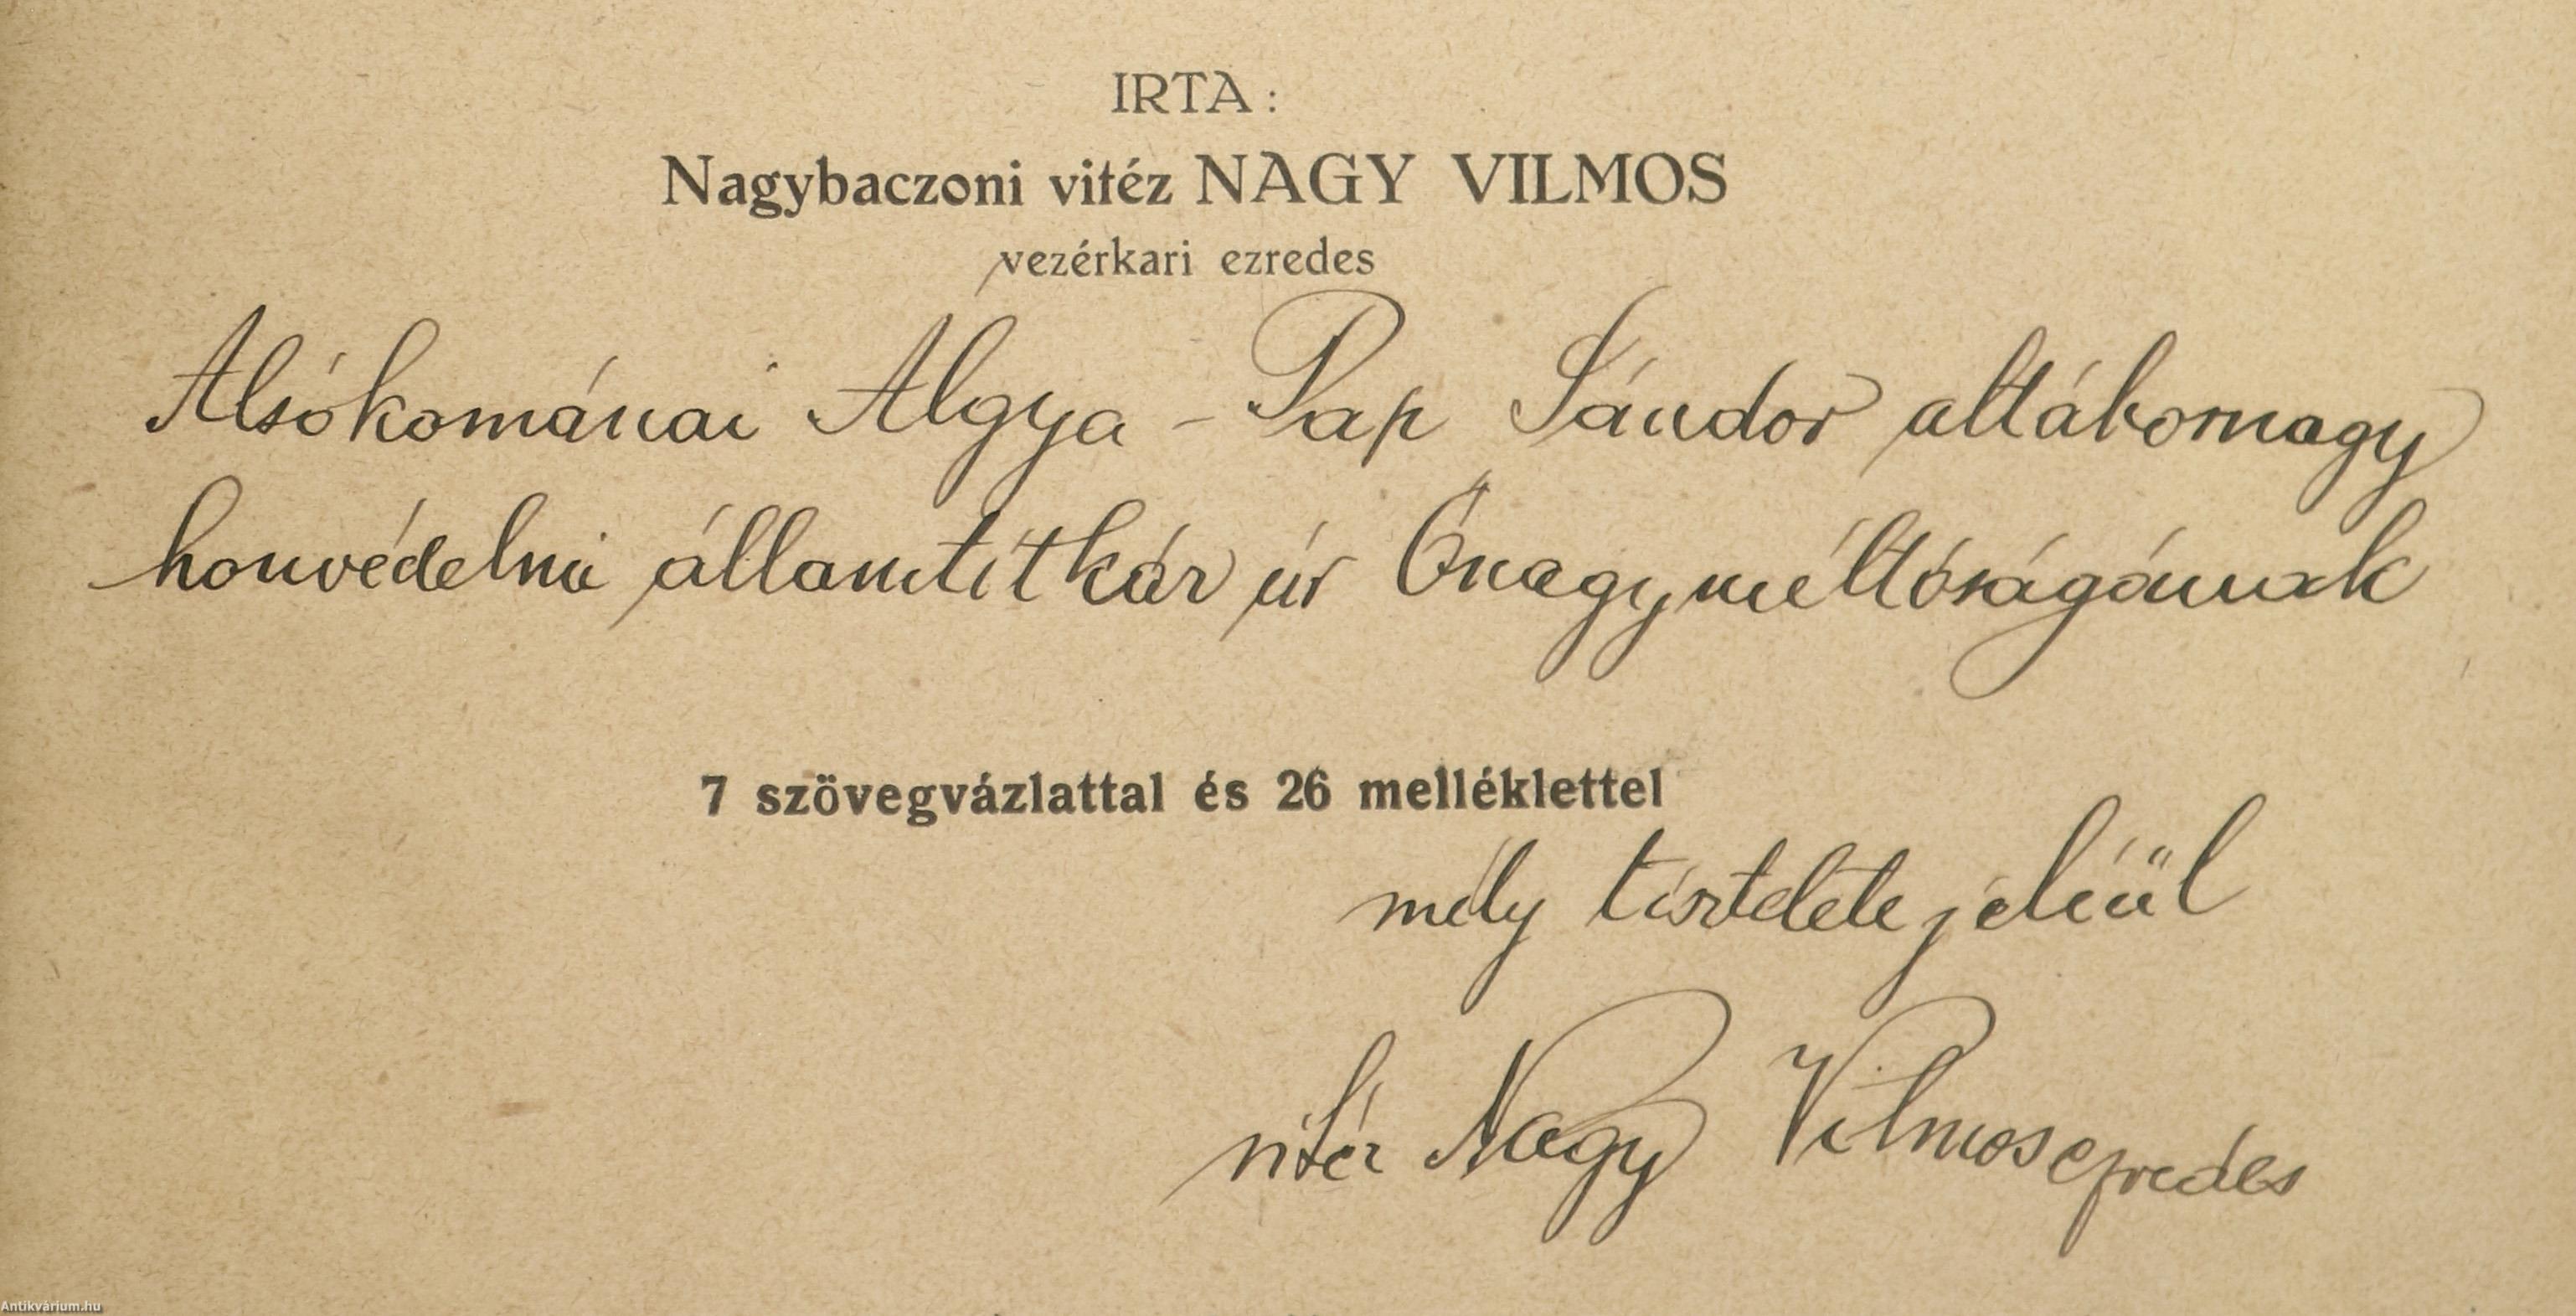 IRTA:
Nagybaczoni vitéz NAGY VILMOS
vezérkari ezredes
Alsókománai Algya-Pap Sándor altábornagy
honvédelmi államtitkár úr Őnagyméltóságának
7 szövegvázlattal és 26 melléklettel
mély tisztelete jeléül
vitéz Nagy Vilmos ezredes
Antikvárium.hu